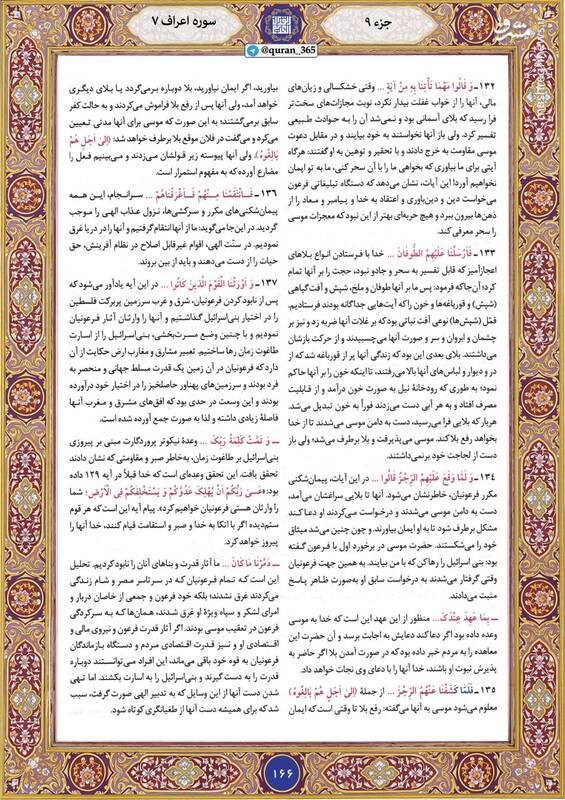 جزء ۹
سوره اعراف ۷
@quran_365
مشرق
۱۳۲ـ وَ قالُوا مَهْما تَأْتِنا بِهِ مِنْ آيَةٍ ... وقتی خشکسالی و زیان‌های
مالی، آنها را از خواب غفلت بیدار نکرد، نوبت مجازات‌های سخت‌تر
فرا رسید که بلای آسمانی بود و نمی‌شد آن را به حوادث طبیعی
تفسیر کرد. ولی باز آنها نخواستند به خود بیایند و در مقابل دعوت
موسی مقاومت به خرج دادند و با تحقیر و توهین به او گفتند: هرگاه
آیتی برای ما بیاوری که بخواهی ما را با آن سحر کنی، ما به تو ایمان
نخواهیم آورد! این آیات، نشان می‌دهد که دستگاه تبلیغاتی فرعون
می‌خواست دین و دین‌باوری و اعتقاد به خدا و پیامبر و معاد را از
ذهن‌ها بیرون ببرد و هیچ حربه‌ای بهتر از این نبود که معجزات موسی
را سحر معرفی کند.
۱۳۳ـ فَأَرْسَلْنا عَلَيْهِمُ الطُّوفانَ... خدا با فرستادن انواع بلاهای
اعجازآمیز که قابل تفسیر به سحر و جادو نبود، حجت را بر آنها تمام
کرد؛ آن‌جا که فرمود: پس ما بر آنها طوفان و ملخ، شپش و آفت گیاهی
(شپش) و قورباغه‌ها و خون را که آیت‌هایی جداگانه بودند فرستادیم.
قمّل (شپش‌ها) نوعی آفت نباتی بود که بر غلات آنها ضربه زد و نیز بر
چشمان و ابروان و سر و صورت آنها می‌چسبیدند و از حرکت بازشان
می‌داشتند. بلای بعدی این بود که زندگی آنها پر از قورباغه شد که از
در و دیوار و لباس‌های آنها بالا می‌رفتند، تا اینکه خون را بر آنها حاکم
نمود؛ به طوری که رودخانهٔ نیل به صورت خون درآمد و از قابلیت
مصرف افتاد و به هر آبی دست می‌زدند فوراً به خون تبدیل می‌شد.
هربار که بلایی فرا می‌رسید، دست به دامن موسی می‌شدند تا از خدا
بخواهد رفع بلا کند. موسی می‌پذیرفت و بلا برطرف می‌شد؛ ولی باز
از دعوت خدا سرباز می‌زدند.
۱۳۴ـ وَ لَمَّا وَقَعَ عَلَيْهِمُ الرِّجْزُ قالُوا ... در این آیات، پیمان‌شکنی
مکرر فرعونیان، خاطرنشان می‌شود. آنها تا بلایی سراغشان می‌آمد،
دست به دامن موسی می‌شدند و درخواست می‌کردند او دعا کند
مشکل برطرف شود تا به او ایمان بیاورند. و چون چنین می‌شد میثاق
خود را می‌شکستند. حضرت موسی در برخورد اول با فرعون گفته
بود: بنی اسرائیل را رها کن که با من بیایند. به همین جهت فرعونیان
وقتی گرفتار می‌شدند به درخواست سابق او به‌صورت ظاهر پاسخ
مثبت می‌دادند.
ـ بِما عَهِدَ عِنْدَكَ... منظور از این عهد این است که خدا به موسی
وعده داده بود اگر دعا کند دعایش به اجابت برسد و آن حضرت این
معاهده را به مردم خبر داده بود که در صورت آمدن بلا اگر حاضر به
پذیرش نبوت او باشند، خدا آنها را با دعای وی نجات خواهد داد.
۱۳۵ـ فَلَمَّا كَشَفْنا عَنْهُمُ الرِّجْزَ ... از جملهٔ ﴿إِلى أَجَلٍ هُمْ بالِغُوهُ﴾
معلوم می‌شود موسی به آنها می‌گفته: رفع بلا تا وقتی است که ایمان
بیاورید، اگر ایمان نیاورید، بلا دوباره برمی‌گردد یا بلای دیگری
خواهد آمد، ولی آنها پس از رفع بلا فراموش می‌کردند و به حالت کفر
سابق برمی‌گشتند؛ به این صورت که موسی برای آنها مدتی تعیین
می‌کرد و می‌گفت در فلان موقع بلا برطرف خواهد شد: ﴿إِلى أَجَلٍ هُمْ
بالِغُوهُ﴾، ولی آنها پیوسته زیر قولشان می‌زدند و می‌بینیم فعل را
مضارع آورده که به مفهوم استمرار است.
۱۳۶ـ فَانْتَقَمْنا مِنْهُمْ فَأَغْرَقْناهُمْ ... سرانجام، این همه
پیمان‌شکنی‌های مکرر و سرکشی‌ها، نزول عذاب الهی را موجب
گردید. در این‌جا می‌گوید: ما از آنها انتقام گرفتیم و آنها را در دریا غرق
نمودیم. در سنّت الهی، اقوام غیرقابل اصلاح در نظام آفرینش، حق
حیات را از دست می‌دهند و باید از بین بروند.
۱۳۷ـ وَ أَوْرَثْنَا الْقَوْمَ الَّذِينَ كانُوا ... در این آیه یادآور می‌شود که
پس از نابود کردن فرعونیان، شرق و غرب سرزمین پربرکت فلسطین
را در اختیار بنی‌اسرائیل گذاشتیم و آنها را وارثان آثار فرعونیان
نمودیم و با چنین وضع مسرت‌بخشی، بنی‌اسرائیل را از اسارت
طاغوت زمان رها ساختیم. تعبیر مشارق و مغارب ارض حکایت از آن
دارد که فرعونیان در آن زمین یک قدرت مسلط جهانی و منحصر به
فرد بودند و سرزمین‌های پهناور حاصلخیز را در اختیار خود درآورده
بودند و این وسعت در حدی بود که افق‌های مشرق و مغرب آنها
فاصلهٔ زیادی داشته و لذا به صورت جمع آورده شده است.
ـ وَ تَمَّتْ كَلِمَتُ رَبِّكَ ... وعدهٔ نیکوتر پروردگارت مبنی بر پیروزی
بنی‌اسرائیل بر طاغوت زمان، به‌خاطر صبر و مقاومتی که نشان دادند
تحقق یافت. این تحقق وعده‌ای است که خدا قبلاً در آیه ۱۲۹ داده
بود: ﴿عَسى رَبُّكُمْ أَنْ يُهْلِكَ عَدُوَّكُمْ وَ يَسْتَخْلِفَكُمْ فِي الْأَرْضِ﴾؛ شما
را وارثان هستی فرعونیان خواهیم کرد». پیام آیه این است که هر قوم
ستم‌دیده اگر با اتکا به خدا و صبر و استقامت قیام کنند، خدا آنها را
پیروز خواهد کرد.
ـ دَمَّرْنا ما كانَ ... ما آثار قدرت و بناهای آنان را نابود کردیم. تحلیل
این است که تمام فرعونیان که در سرتاسر مصر و شام زندگی
می‌کردند غرق نشدند؛ بلکه خود فرعون و جمعی از خاصان دربار و
امرای لشکر و سپاه ویژهٔ او غرق شدند، همان‌ها که به سرکردگی
فرعون در تعقیب موسی بودند. اگر آثار قدرت فرعون و نیروی مالی و
اقتصادی او و نیز قدرت اقتصادی مردم و دستگاه بازماندگان
فرعونیان به قوه خود باقی می‌ماند، این افراد می‌توانستند دوباره
قدرت را به دست گیرند و بنی‌اسرائیل را به اسارت بکشند. اما تهی
شدن دست آنها از این وسایل که به تدبیر الهی صورت گرفت، سبب
شد که برای همیشه دست آنها از طغیانگری کوتاه شود.
۱۶۶